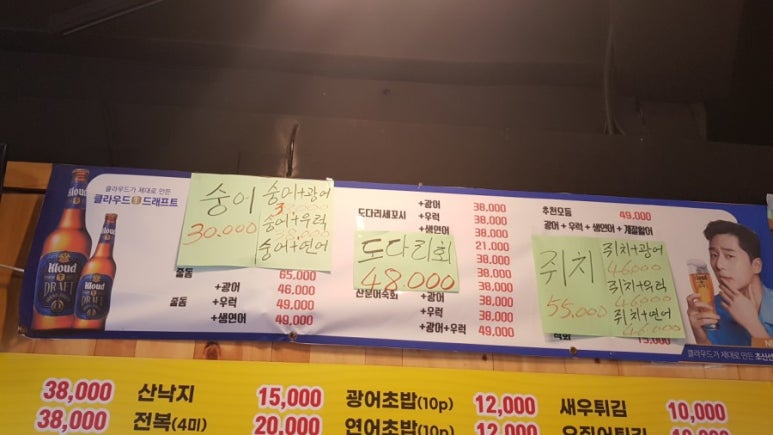 클라우드가 제대로 만든
클라우드 드래프트
kloud
DRAFT
kloud
DRAFT
숭어
30.000
숭어+광어
숭어+우럭
숭어+연어
줄돔 65,000
+광어 46,000
줄돔 +우럭 49,000
+생연어 49,000
+광어 38,000
도다리세꼬시 +우럭 38,000
+생연어 38,000
21,000
도다리회
48.000
38,000
38,000
산문어숙회 +광어 38,000
+우럭 38,000
+광어+우럭 49,000
추천모듬 49,000
광어+우럭+생연어+계절활어
쥐치
55.000
쥐치+광어
46000
쥐치+우럭
46000
쥐치+연어
46000
15,000
클라우드가 제대로 만든 초신선
38,000 산낙지 15,000 광어초밥(10p) 12,000 새우튀김 10,000
38,000 전복(4미) 20,000 연어초밥(10p) 12,000 오징어튀김 10,000